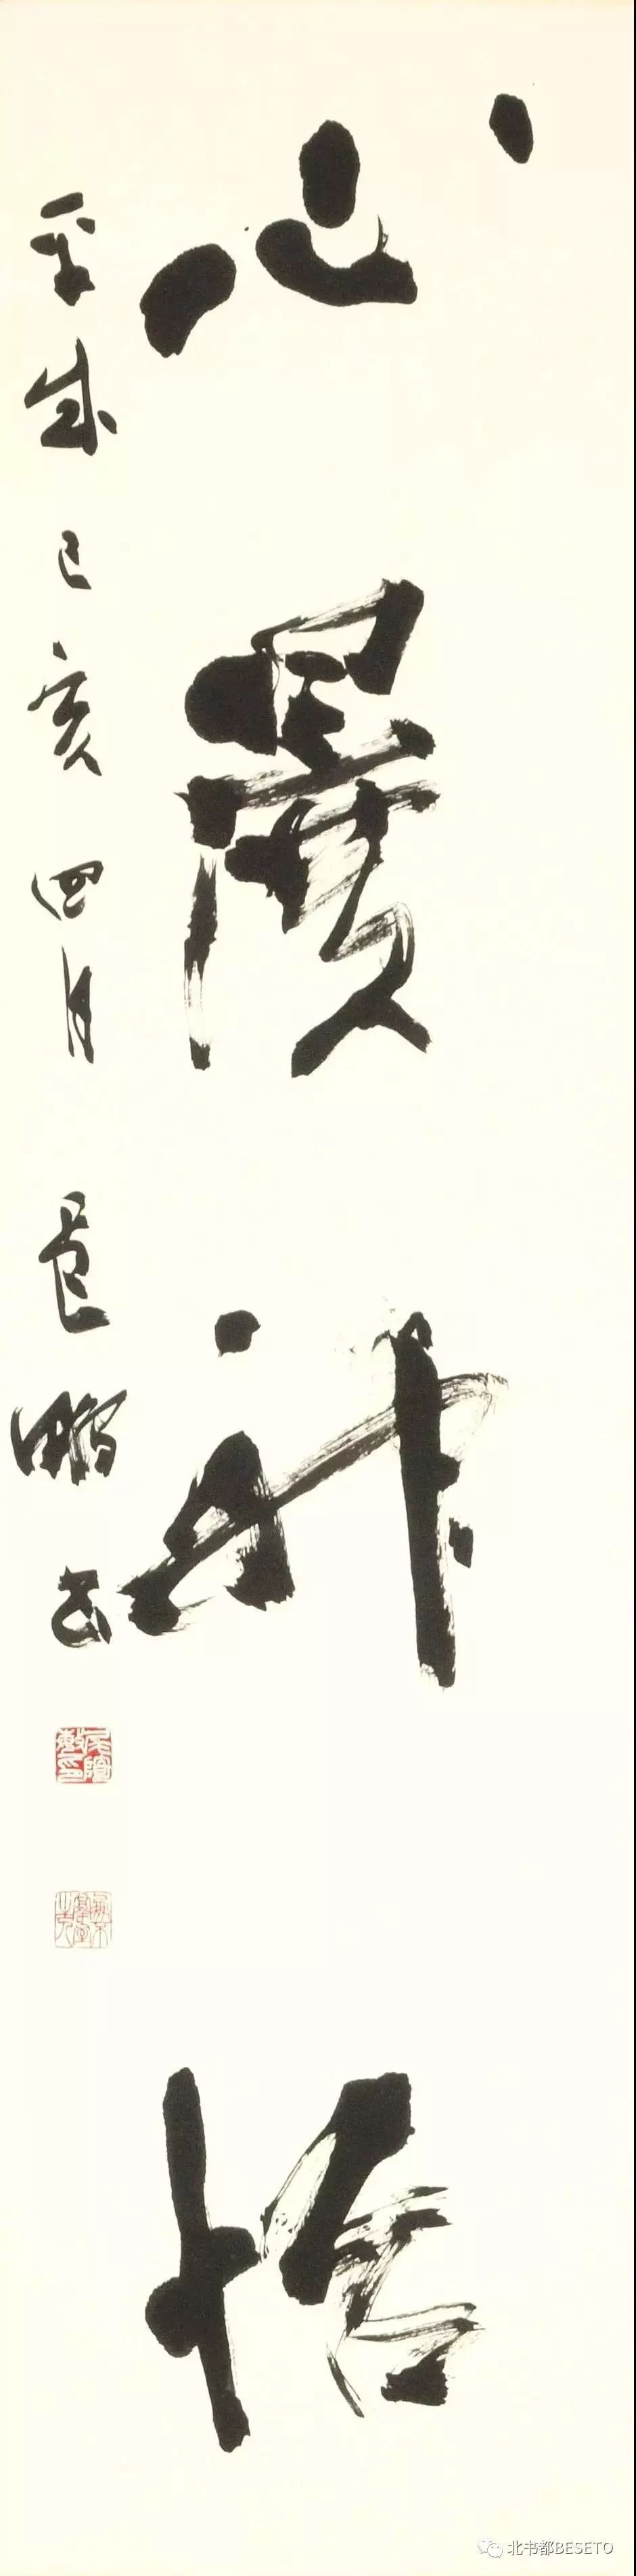 心旷神怡
平成己亥四月长鹏书
北书都BESETO